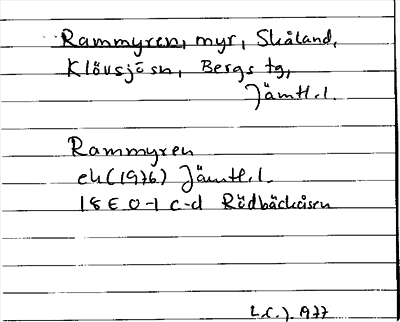 Rammyren, myr, Skåland,
Klövsjö sn, Bergs tg,
Jämtl. l.
Rammyren
ek (1976) Jämtl. l.
18 E 0-1 c-d Rödbäcksåsen
1977